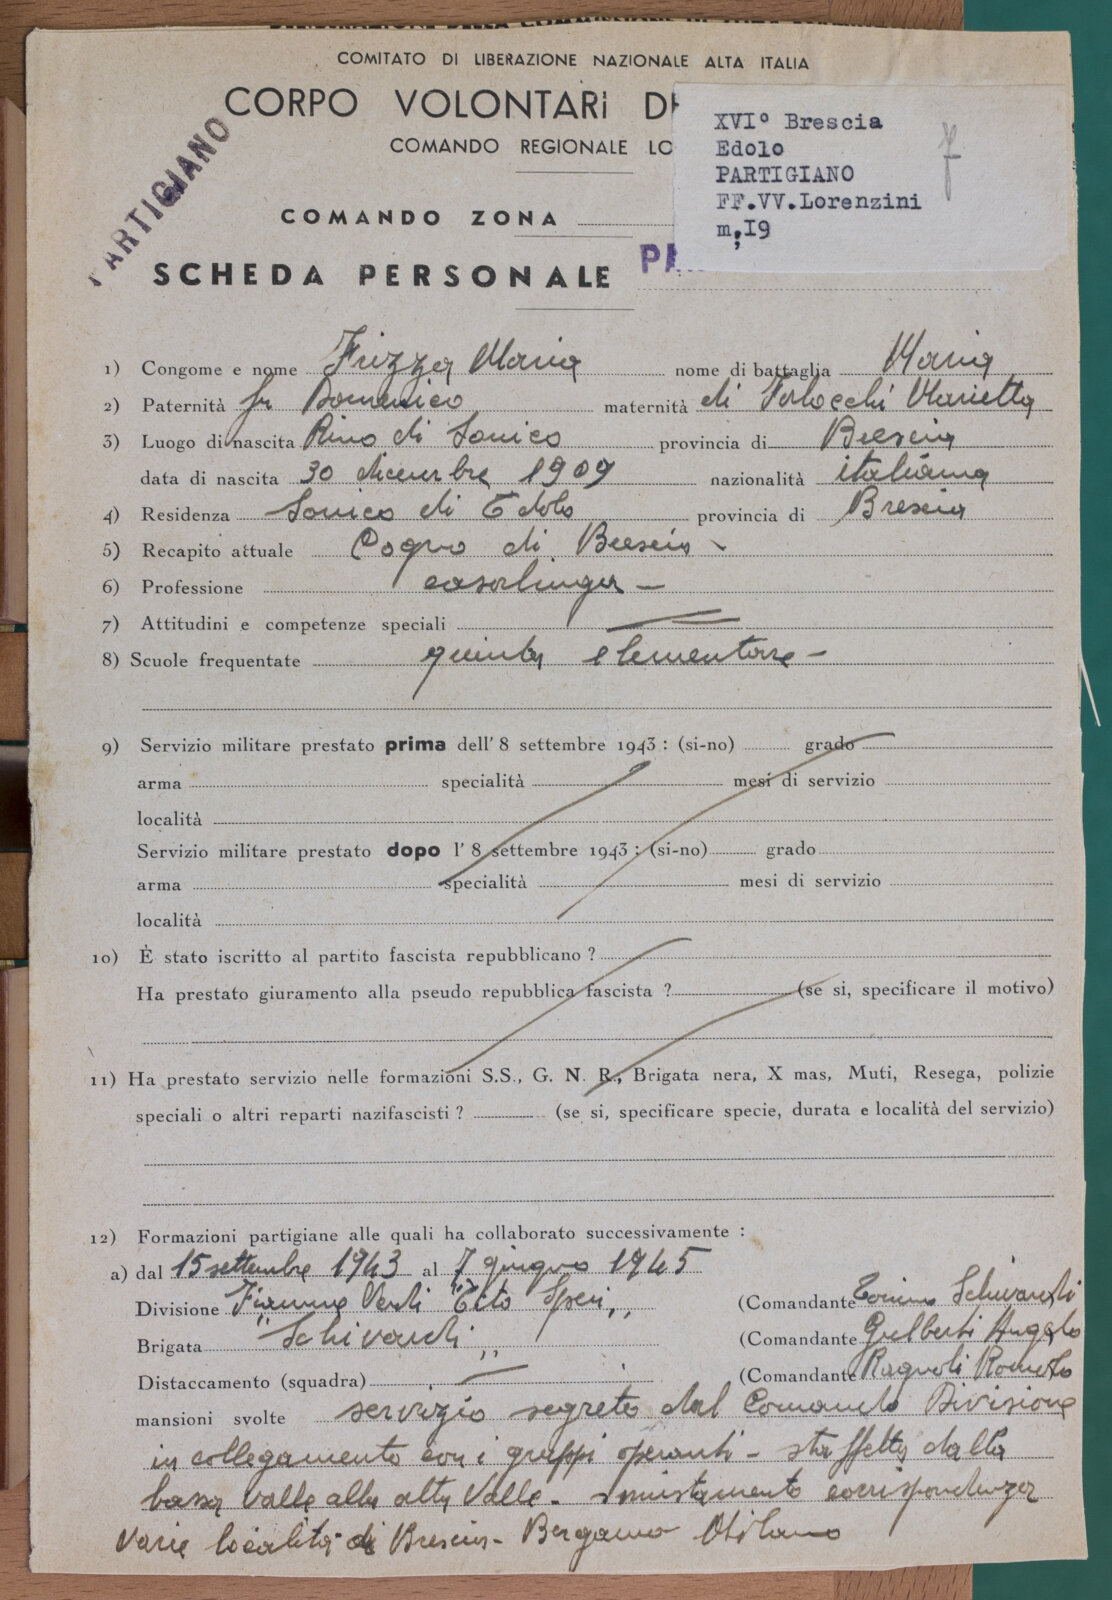 COMITATO DI LIBERAZIONE NAZIONALE ALTA ITALIA
CORPO VOLONTARI DE
COMANDO REGIONALE LO
XVI° Brescia
Edolo
PARTIGIANO
FF.VV.Lorenzini
m;I9
PARTIGIANO
COMANDO ZONA
SCHEDA PERSONALE PA
1) Congome e nome Frizza Maria nome di battaglia Maria
2) Paternità fu Domenico maternità di Forlocchi Marietta
3) Luogo di nascita Rino di Sonico provincia di Brescia
data di nascita 30 dicembre 1909 nazionalità italiana
4) Residenza Sonico di Edolo provincia di Brescia
5) Recapito attuale Cogno di Brescia -
6) Professione casalinga -
7) Attitudini e competenze speciali
8) Scuole frequentate quinta elementare -
9) Servizio militare prestato prima dell' 8 settembre 1943 : (si-no) grado
arma specialità mesi di servizio
località
Servizio militare prestato dopo l' 8 settembre 1943 : (si-no) grado
arma specialità mesi di servizio
località
10) È stato iscritto al partito fascista repubblicano ?
Ha prestato giuramento alla pseudo repubblica fascista ? (se si, specificare il motivo)
11) Ha prestato servizio nelle formazioni S.S., G. N. R., Brigata nera, X mas, Muti, Resega, polizie
speciali o altri reparti nazifascisti ? (se si, specificare specie, durata e località del servizio)
12) Formazioni partigiane alle quali ha collaborato successivamente :
a) dal 15 settembre 1943 al 7 giugno 1945
Divisione Fiamme Verdi "Tito Speri" (Comandante Schivardi
Brigata "Schivardi" (Comandante Angelo
Distaccamento (squadra) — (Comandante Ragnoli Romolo
mansioni svolte servizio segreto dal Comando Divisione
in collegamento con i gruppi operanti - staffetta dalla
bassa valle alla alta Valle - smistamento corrispondenza
varie località di Brescia - Bergamo Milano